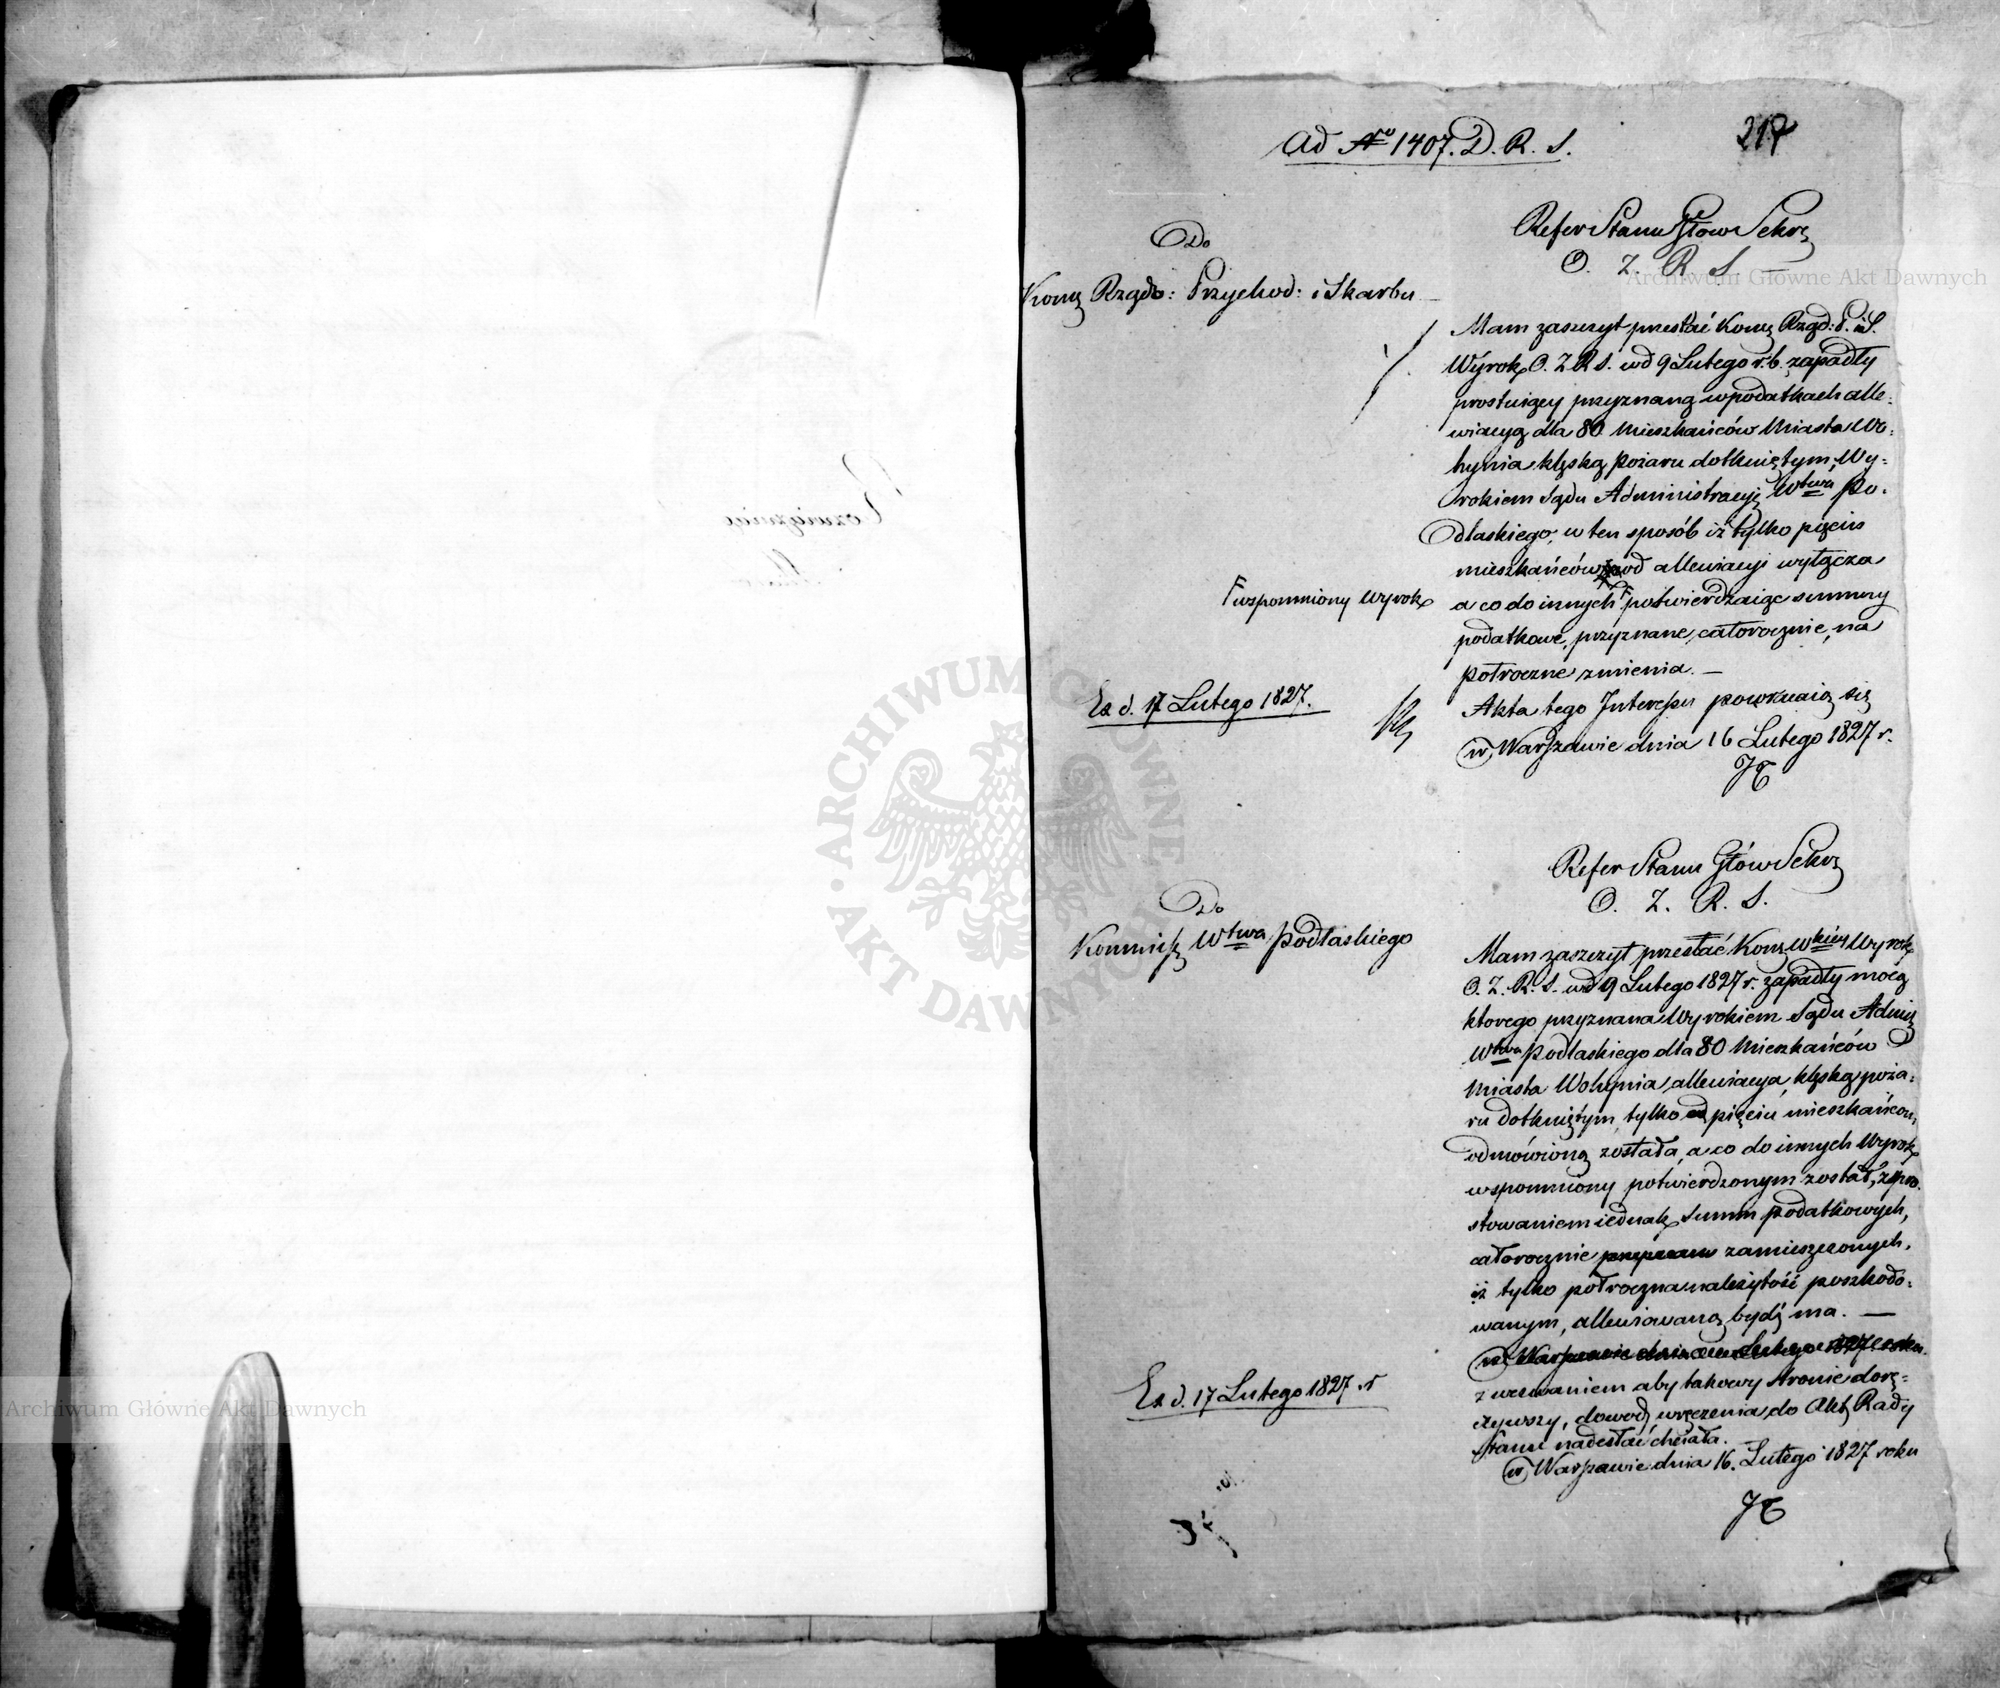 Ad No 1407. D. R. S.
217
Refer Stanu Głow Sekrz
O. Z. R. S. —
Do
Komz Rządo: Przychod: i Skarbu —
Mam zaszczyt przesłać Komz Rząd: P. i S.
Wyrok O. Z R S. w d 9 Lutego r. b. zapadły
prostuiący przyznaną w podatkach alle-
wiacyą dla 80 Mieszkańców Miasta Wo-
hynia klęską pożaru dotkniętym, Wy-
rokiem Sądu Administracyi Wtwa Po-
dlaskiego, w ten sposób iż tylko pięciu
mieszkańców od allewiacyi wyłącza
a co do innych F potwierdzaiąc summy
F wspomniony Wyrok
podatkowe, przyznane całorocznie, na
półroczne zmienia. —
Akta tego Interessu powracaią się
w Warszawie dnia 16 Lutego 1827 r.
Ex d. 17 Lutego 1827.
Refer Stanu Głów Sekrz
O. Z. R. S.
Do
Kommissz Wtwa Podlaskiego
Mam zaszczyt przesłać Komz Wkiey Wyrok
O. Z. R. S. w d 9 Lutego 1827 r. zapadły mocą
ktorego przyznana Wyrokiem Sądu Adminz
Wtwa Podlaskiego dla 80 Mieszkańców
Miasta Wohynia allewiacya, klęską poża-
ru dotkniętym, tylko pięciu mieszkańcom
odmówioną została, a co do innych Wyrok
wspomniony potwierdzonym został, z spro-
stowaniem iednak Summ podatkowych,
całorocznie zamieszczonych,
iż tylko półroczna należytość poszkodo-
wanym, allewiowaną bydź ma. —
w Warszawie dnia Lutego 1827 roku
z wezwaniem aby takowy stronie dorę-
czywszy, dowod wręczenia do Akt Rady
Stanu nadesłać chciała.
w Warszawie dnia 16. Lutego 1827 roku
Ex d. 17 Lutego 1827. r
Archiwum Główne Akt Dawnych
Archiwum Główne Akt Dawnych
ARCHIWUM GŁÓWNE AKT DAWNYCH